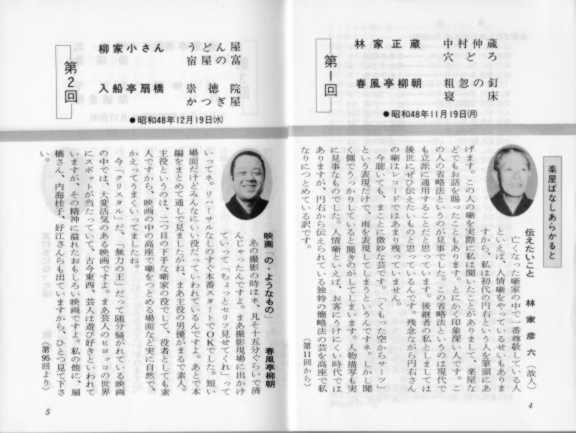 第1回
林家正蔵
中村仲蔵
穴どろ
春風亭柳朝
粗忽の釘
寝床
●昭和48年11月19日㈪
楽屋ばなしあらかると
伝えたいこと
林家彦六(故人)
亡くなった噺家の中で一番尊敬している人
といえば、人情噺をやっている
すから、私は初代の円右という人を筆頭にあ
げます。この人の噺を実際に私は聞いたことがありまして、楽屋な
どでもお話を賜ったこともあります。とにかく印象深い人です。こ
の人の省略法というのが見事でした。この省略法というのは現代で
も立派に通用することだと思っています。後継者の私としましては
後世にぜひ伝えたいものと思っているんです。残念ながら円右さん
の噺はレコードではあまり残っていません。
今席でも、まことに微妙な芸です。「くもった空からサーッ」
という表現だけで、雨を表現してしまうというんですネ。しかし聞
く側でうっかりしていると聞きのがしてしまいます。人物描写も実
に見事なものでした。人情噺といえば、お客にうけにくい時代では
ありますが、円右から伝えられている独特の簡略法の芸を高座で私
なりにつとめている訳です。
(第11回から)
4
第2回
柳家小さん
うどん屋
宿屋の富
入船亭扇橋
崇徳院
かつぎ屋
●昭和48年12月19日㈬
映画「の・ようなもの」
春風亭柳朝
あの撮影の時はネ、凡そ十五分ぐらいで済
んじゃったんですよ。まあ撮影現場に出かけ
ていって「ちょっとセリフ見せてくれ」って
いってネ。リハーサルなしのすぐ本番スタートでOKでした。短い
場面だけどみんないい役だっていわれているんですよ。あとで本
編をまとめて通しで見ましたがね、まあ主役の男優がまるで素人。
主役というのは、二つ目の下手な噺家の役でして、役者としても素
人ですから、映画の中の高座で噺をつとめる場面など実に自然で、
かえってうまくいってましたね。
今、「クリスタル」だ、「無力の王」だって随分騒がれている映画
の中では、大変活気のある映画ですよ。まあ芸人のヒヨッコの世界
にスポットが当たっていて、古今東西、芸人は遊び好きといわれて
いますが、その精神に溢れたおもしろい映画ですよ。私の他に、扇
橋さん、内海桂子、好江さんらも出ていますから、ひとつ見て下さ
い。
(第95回より)
5